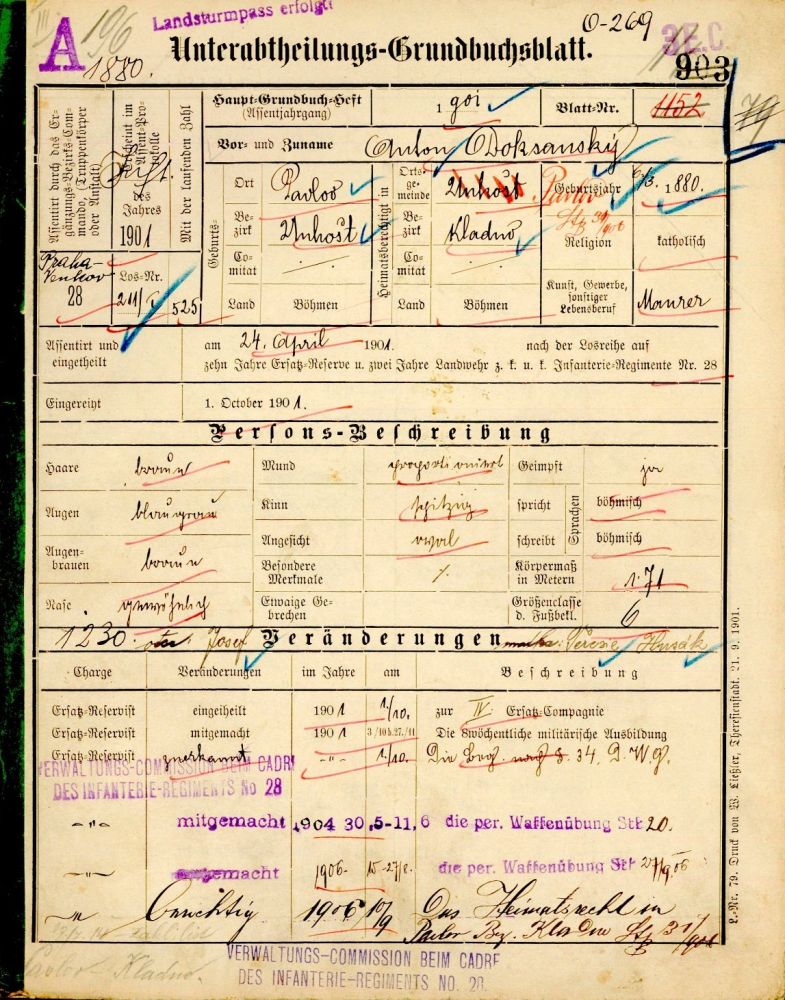 Landsturmpass erfolgt
A
196
1880.
O-269
Unterabtheilungs-Grundbuchsblatt.
903
79
Assentirt durch das Ergänzungs-Bezirks-Commando, (Truppenkörper oder Anstalt)
Praha-Venkov
28
Erscheint im Assent-Protokolle
des Jahres
1901
Los-Nr.
211/I
Mit der laufenden Zahl
525
Haupt-Grundbuch-Heft
(Assentjahrgang)
1 901
Blatt-Nr.
1152
Vor- und Zuname
Anton Doksanský
Geburts-
Ort
Pavlov
Bezirk
Unhošt
Comitat
Land
Böhmen
Heimatsberechtigt in
Ortsgemeinde
Unhošt
Pavlov
Bezirk
Kladno
Comitat
Land
Böhmen
Geburtsjahr
6/3. 1880.
Religion
katholisch
Kunst, Gewerbe, sonstiger Lebensberuf
Maurer
Assentirt und eingetheilt
am 24. April 1901. nach der Losreihe auf
zehn Jahre Ersatz-Reserve u. zwei Jahre Landwehr z. k. u. k. Infanterie-Regimente Nr. 28
Eingereiht
1. October 1901.
Persons-Beschreibung
Haare braun
Mund proportionirt
Geimpft ja
Augen blaugrau
Kinn spitzig
Sprachen
spricht böhmisch
Augenbrauen braun
Angesicht oval
schreibt böhmisch
Besondere Merkmale ⁒
Körpermaß in Metern 1.71
Nase gewöhnlich
Etwaige Gebrechen
Größenclasse d. Fußbekl. 6
1230. otec Josef Veränderungen matka: Terezie Husák
Charge Veränderungen im Jahre am Beschreibung
Ersatz-Reservist eingetheilt 1901 1./10. zur IV. Ersatz-Compagnie
Ersatz-Reservist mitgemacht 1901 3/10 b. 27./11 Die 8wöchentliche militärische Ausbildung
Ersatz-Reservist zuerkannt -"- 1./10. Die Beg. nach §. 34. D. W. G.
VERWALTUNGS-COMMISSION BEIM CADRE
DES INFANTERIE-REGIMENTS No 28
-"- mitgemacht 1904 30.5-11.6 die per. Waffenübung Stb 20.
-"- mitgemacht 1906. 15-27/8. die per. Waffenübung St. 27/9 06
-"- berichtig 1906 10/9 Das Heimatsrecht in
Pavlov Bez. Kladno
VERWALTUNGS-COMMISSION BEIM CADRE
DES INFANTERIE-REGIMENTS NO. 28
Pavlov Kladno.
L.-Nr. 79. Druck von W. Ließler, Theresienstadt. 21. 9. 1901.